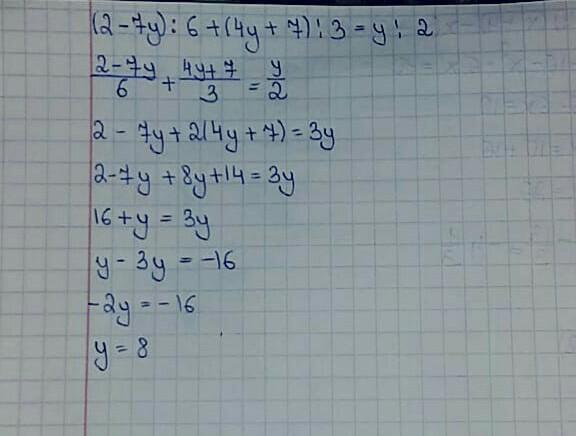 (2-7y):6+(4y+7):3=y:2
\frac{2-7y}{6}+\frac{4y+7}{3}=\frac{y}{2}
2-7y+2(4y+7)=3y
2-7y+8y+14=3y
16+y=3y
y-3y=-16
-2y=-16
y=8